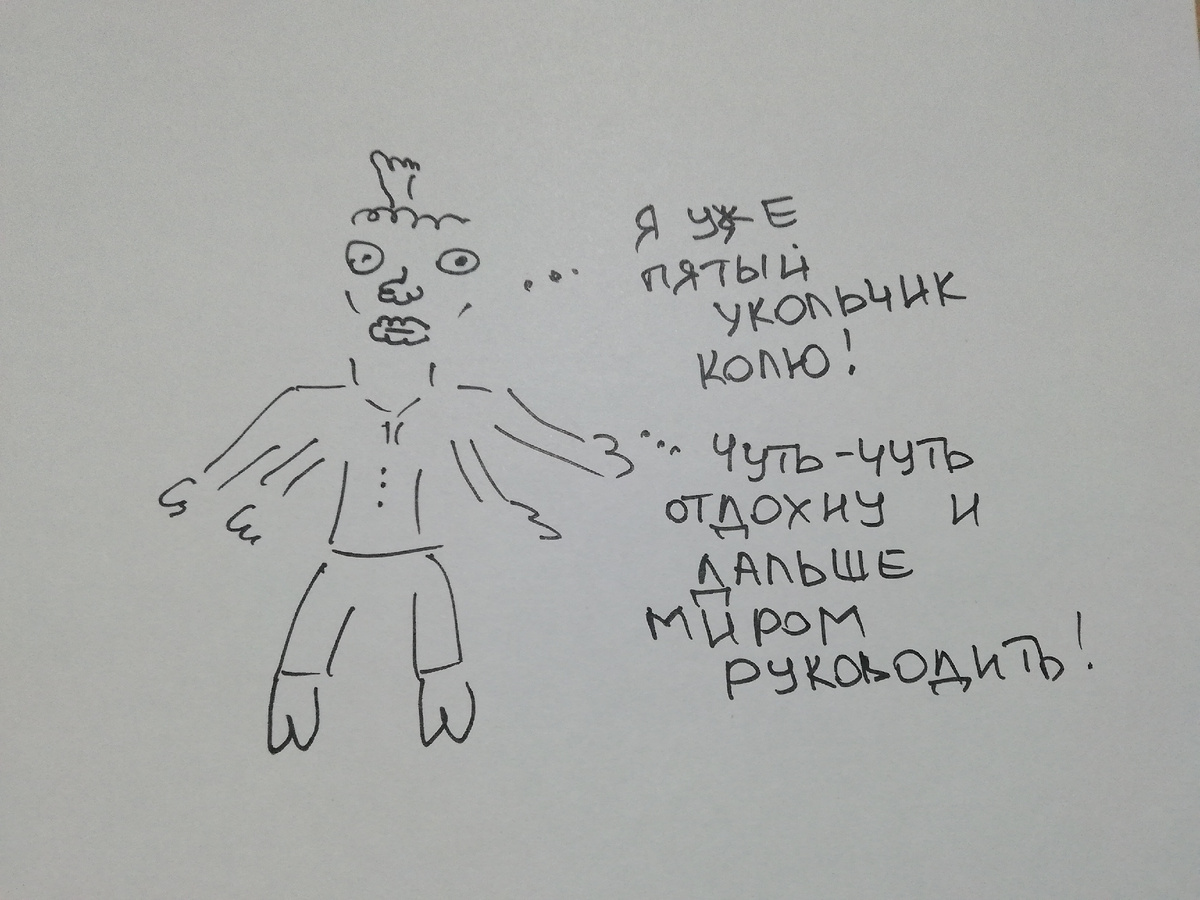 Я УЖЕ
ПЯТЫЙ
УКОЛЬЧИК
КОЛЮ!
ЧУТЬ-ЧУТЬ
ОТДОХНУ И
ДАЛЬШЕ
МИРОМ
РУКОВОДИТЬ!